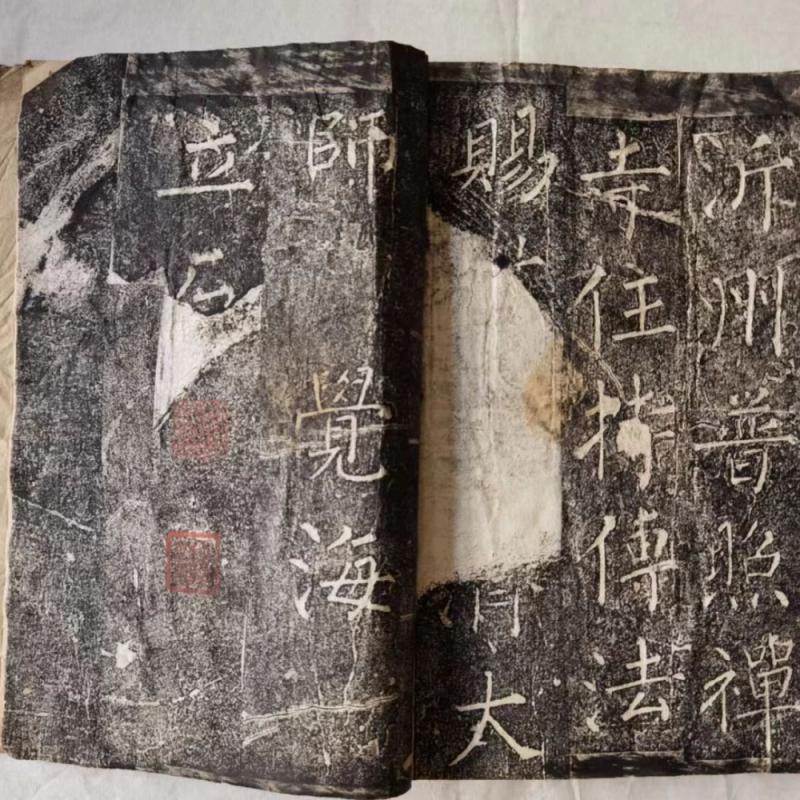 沂州普照禪
寺住持傳法
賜
大
師覺海
立石